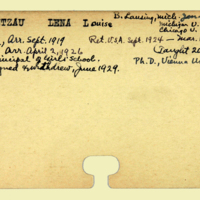 TZAU LENA Louise
B. Lansing, Mich. Jan
Michigan U.
Chicago U.
, Arr. Sept. 1919
Ret. U.S.A. Sept. 1924 — Mar.
Arr. April 2, 1926
Taught 20
rincipal of Girls' School.
gned & withdrew, June 1929.
Ph.D., Vienna Un